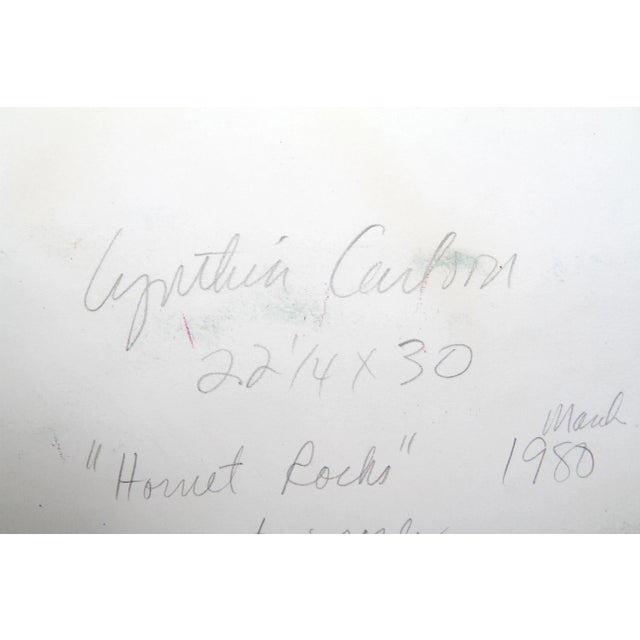 Cynthia Carlson
22 1/4 x 30
"Hornet Rocks"
March
1980